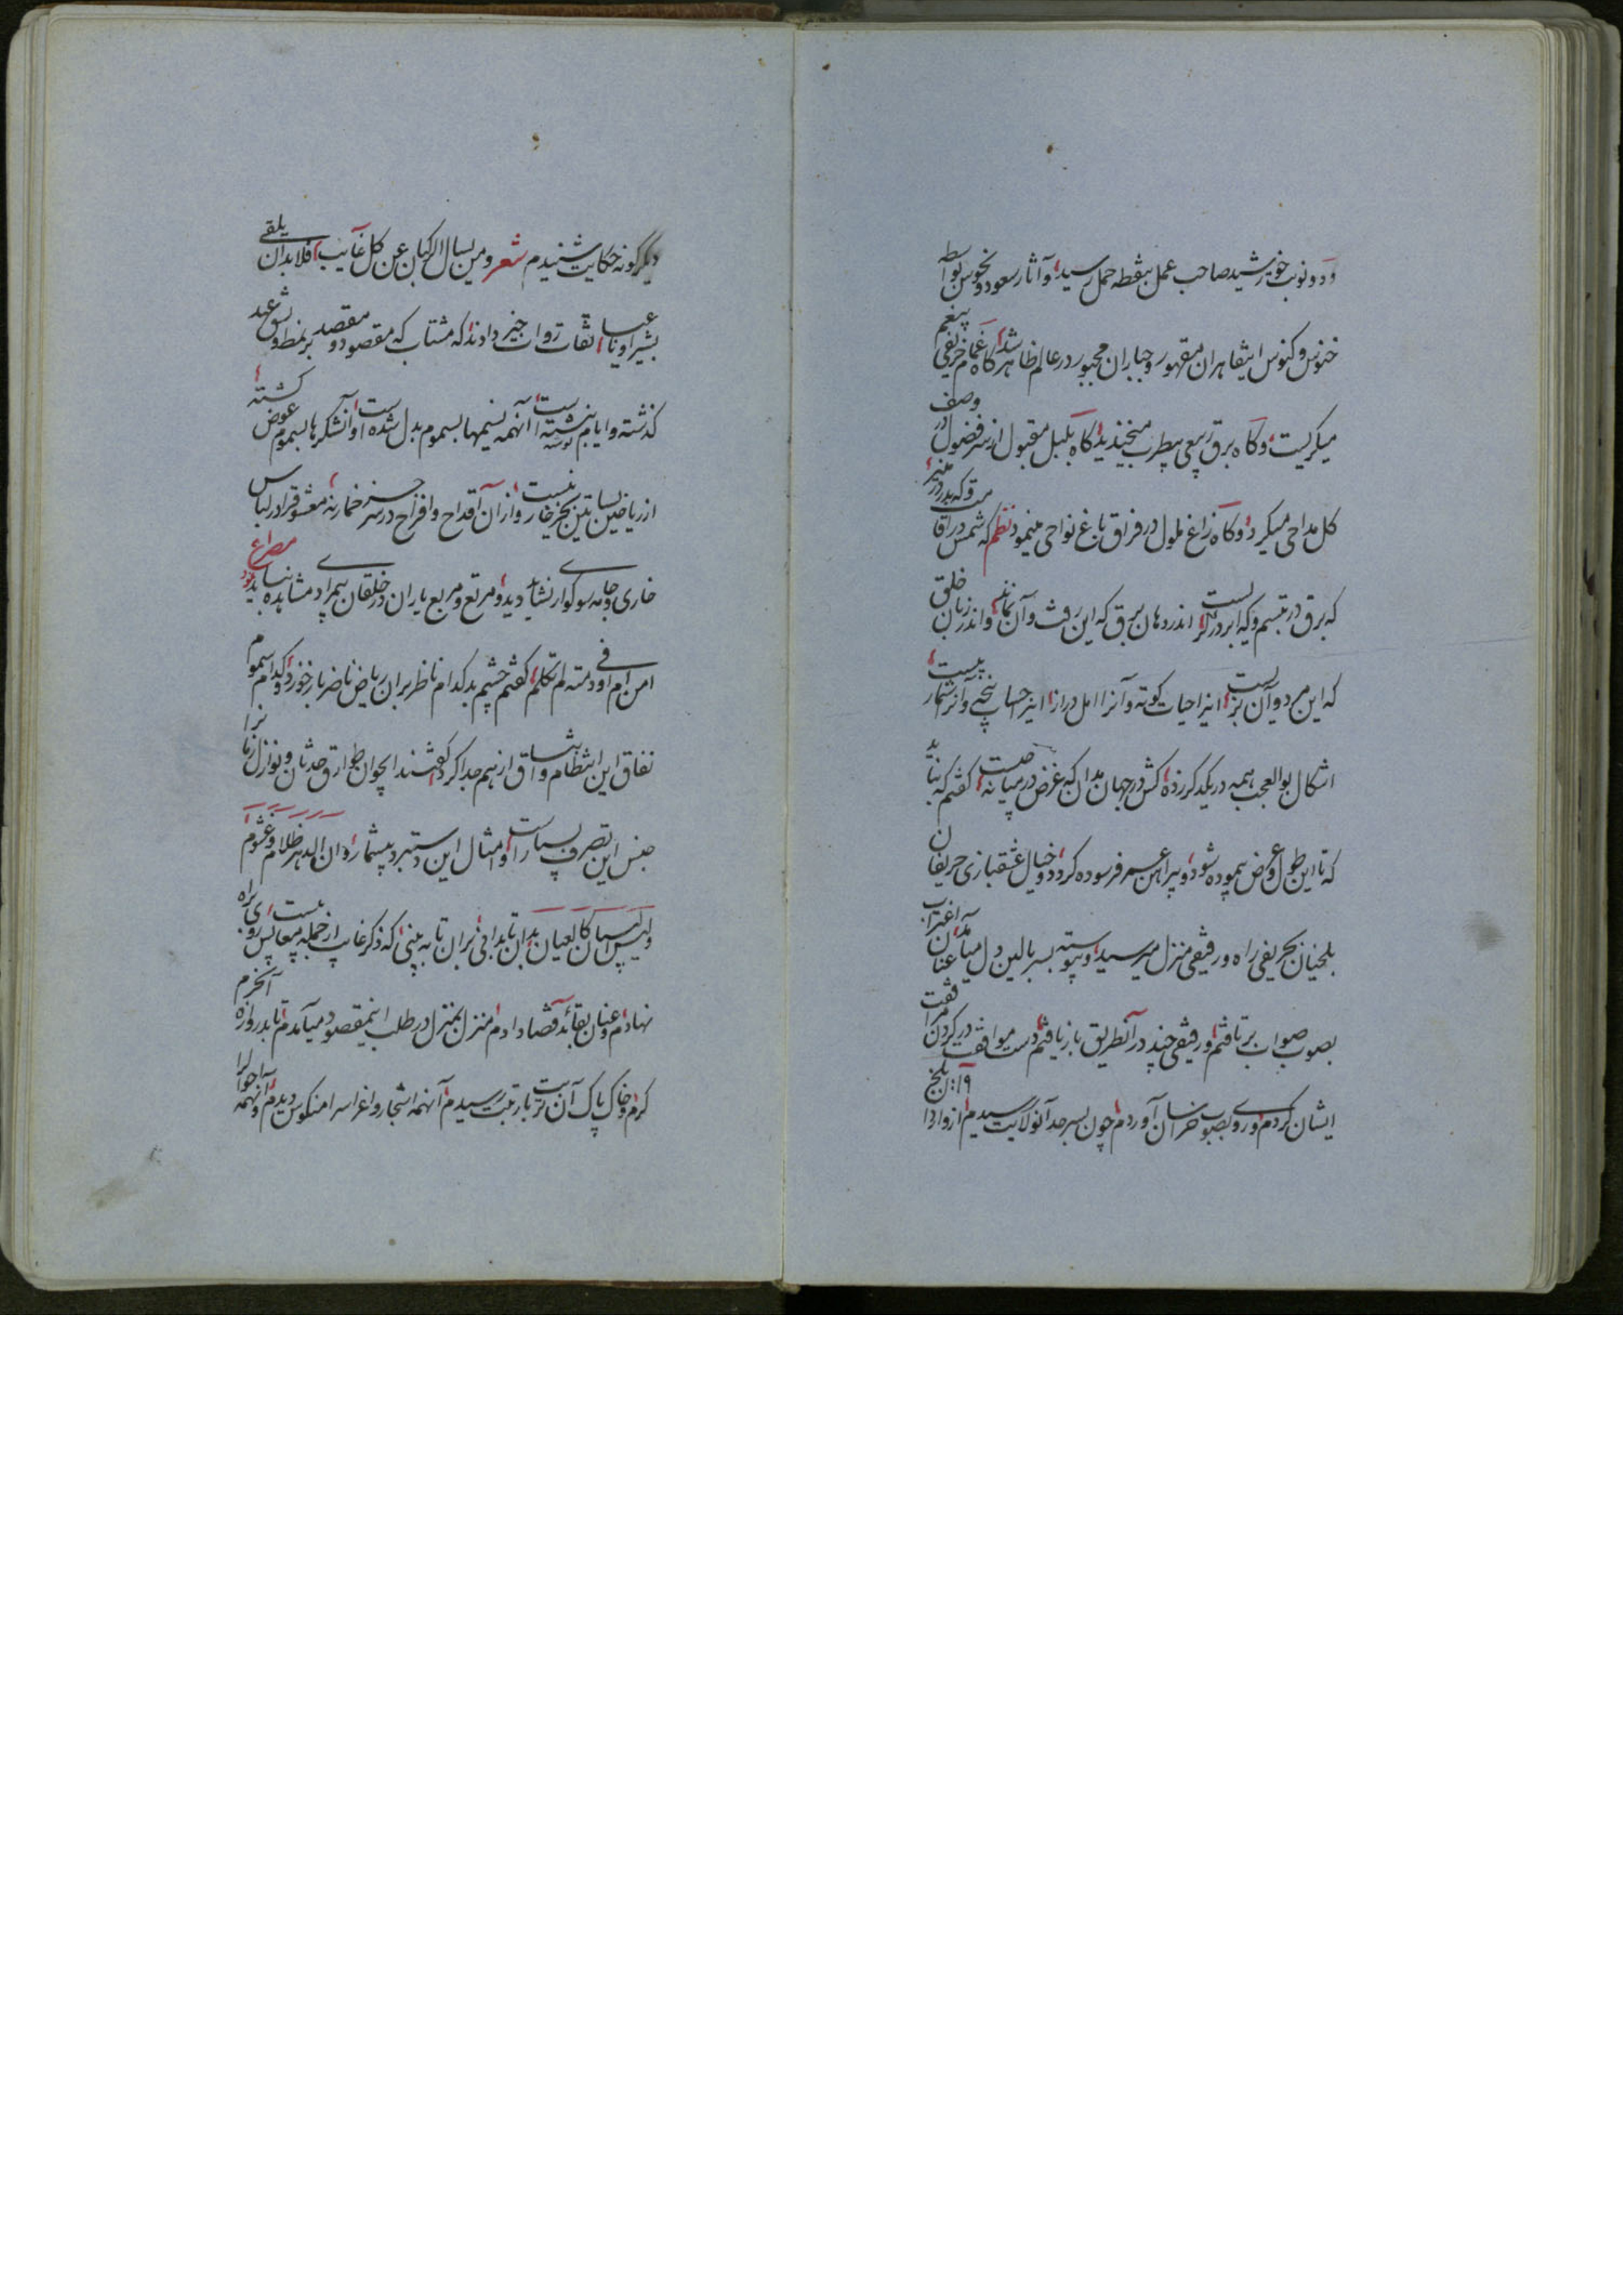 ود و نوبت خورشید صاحب عمل بنقطه حمل رسید و آثار سعود و نحوس بواسطه
خنوس و کنوس اینقاهران مقهور و جباران مجبور در عالم ظاهر شد گاه غمام خریفی بیغم
میگریست و گاه برق ربیعی بطرب میخندید گاه بلبل مقبول از سر فضول در وصف
گل مداحی میکرد و گاه زاغ ملول در فراق باغ نواحی مینمود نظم که شمس در
که برق در تبسم و که ابر در گریست اندر دهان برق که این رفت و آن نماند و اندر زبان خلق
که این مرد و آن بزیست اینرا حیات کوته و آنرا امل دراز اینرا حساب پنجه و آنرا شمار بیست
اشکال بوالعجب همه در یکدگر زده کش در جهان بدان که غرض در میانه چیست گفتم که نباید
که تا این طول و عرض پیموده شود و پیراهن عمر فرسوده گردد و خیال عشقبازی حریفان
بلخیان بحریفی راه و رفیقی منزل میرسید و پیوسته بسر بالین دل میآمد عنان اغتراب
بصوب صواب برتافتم و رفیقی چند در آنطریق بازیافتم دست موافقت در کردن مرافقت
ایشان کردم و روی بصوب خراسان آوردم چون بسرحد آنولایت رسیدم از واردان بلخ
دیگرگونه حکایت شنیدم شعر و من یسال الرکبان عن کل غایب فلا بد ان یلقی
بشیرا و ناعیا ثقات روات خبر دادند که مشتاب که مقصود و مقصد بر نمط و نسق عهد
گذشته و ایام نبشته است آنهمه نسیمها بسموم بدل شده است و آنشکرها بسموم عوض گشته
از ریاحین بساتین بجز خار نیست و از آن اقداح و افراح در سر جز خمار نه معشوق را در لباس
خاری و جامه سوکواری نشاید دید و مرتع و مربع یاران در خلقان بیمرادی مشاهده نباید بود مصراع
امن ام اوفی دمنة لم تکلم گفتم چشم بد کدام ناظر بران ریاض ناضر باز خورد و کدام سموم
نفاق این انتظام و اتساق از هم جدا کرد گفتند ای جوان طوارق حدثان و نوازل زمان را
جنس این تصرف بسیار است و امثال این دستبرد بیشمار و ان الدهر ظلام و غشوم
ولیس السماع کالعیان بدان تا بدانی بران تا به بینی که ذکر غایب از جمله معایبست پس روی براه
نهادم و عنان بقائد قضا دادم منزل بمنزل در طلب اینمقصود میآمدم تا بدروازه آنحرم
کرم و خاک پاک آن تربت بارتبت رسیدم آنهمه اشجار و اغراس را منکوس دیدم و آنهمه احوال را